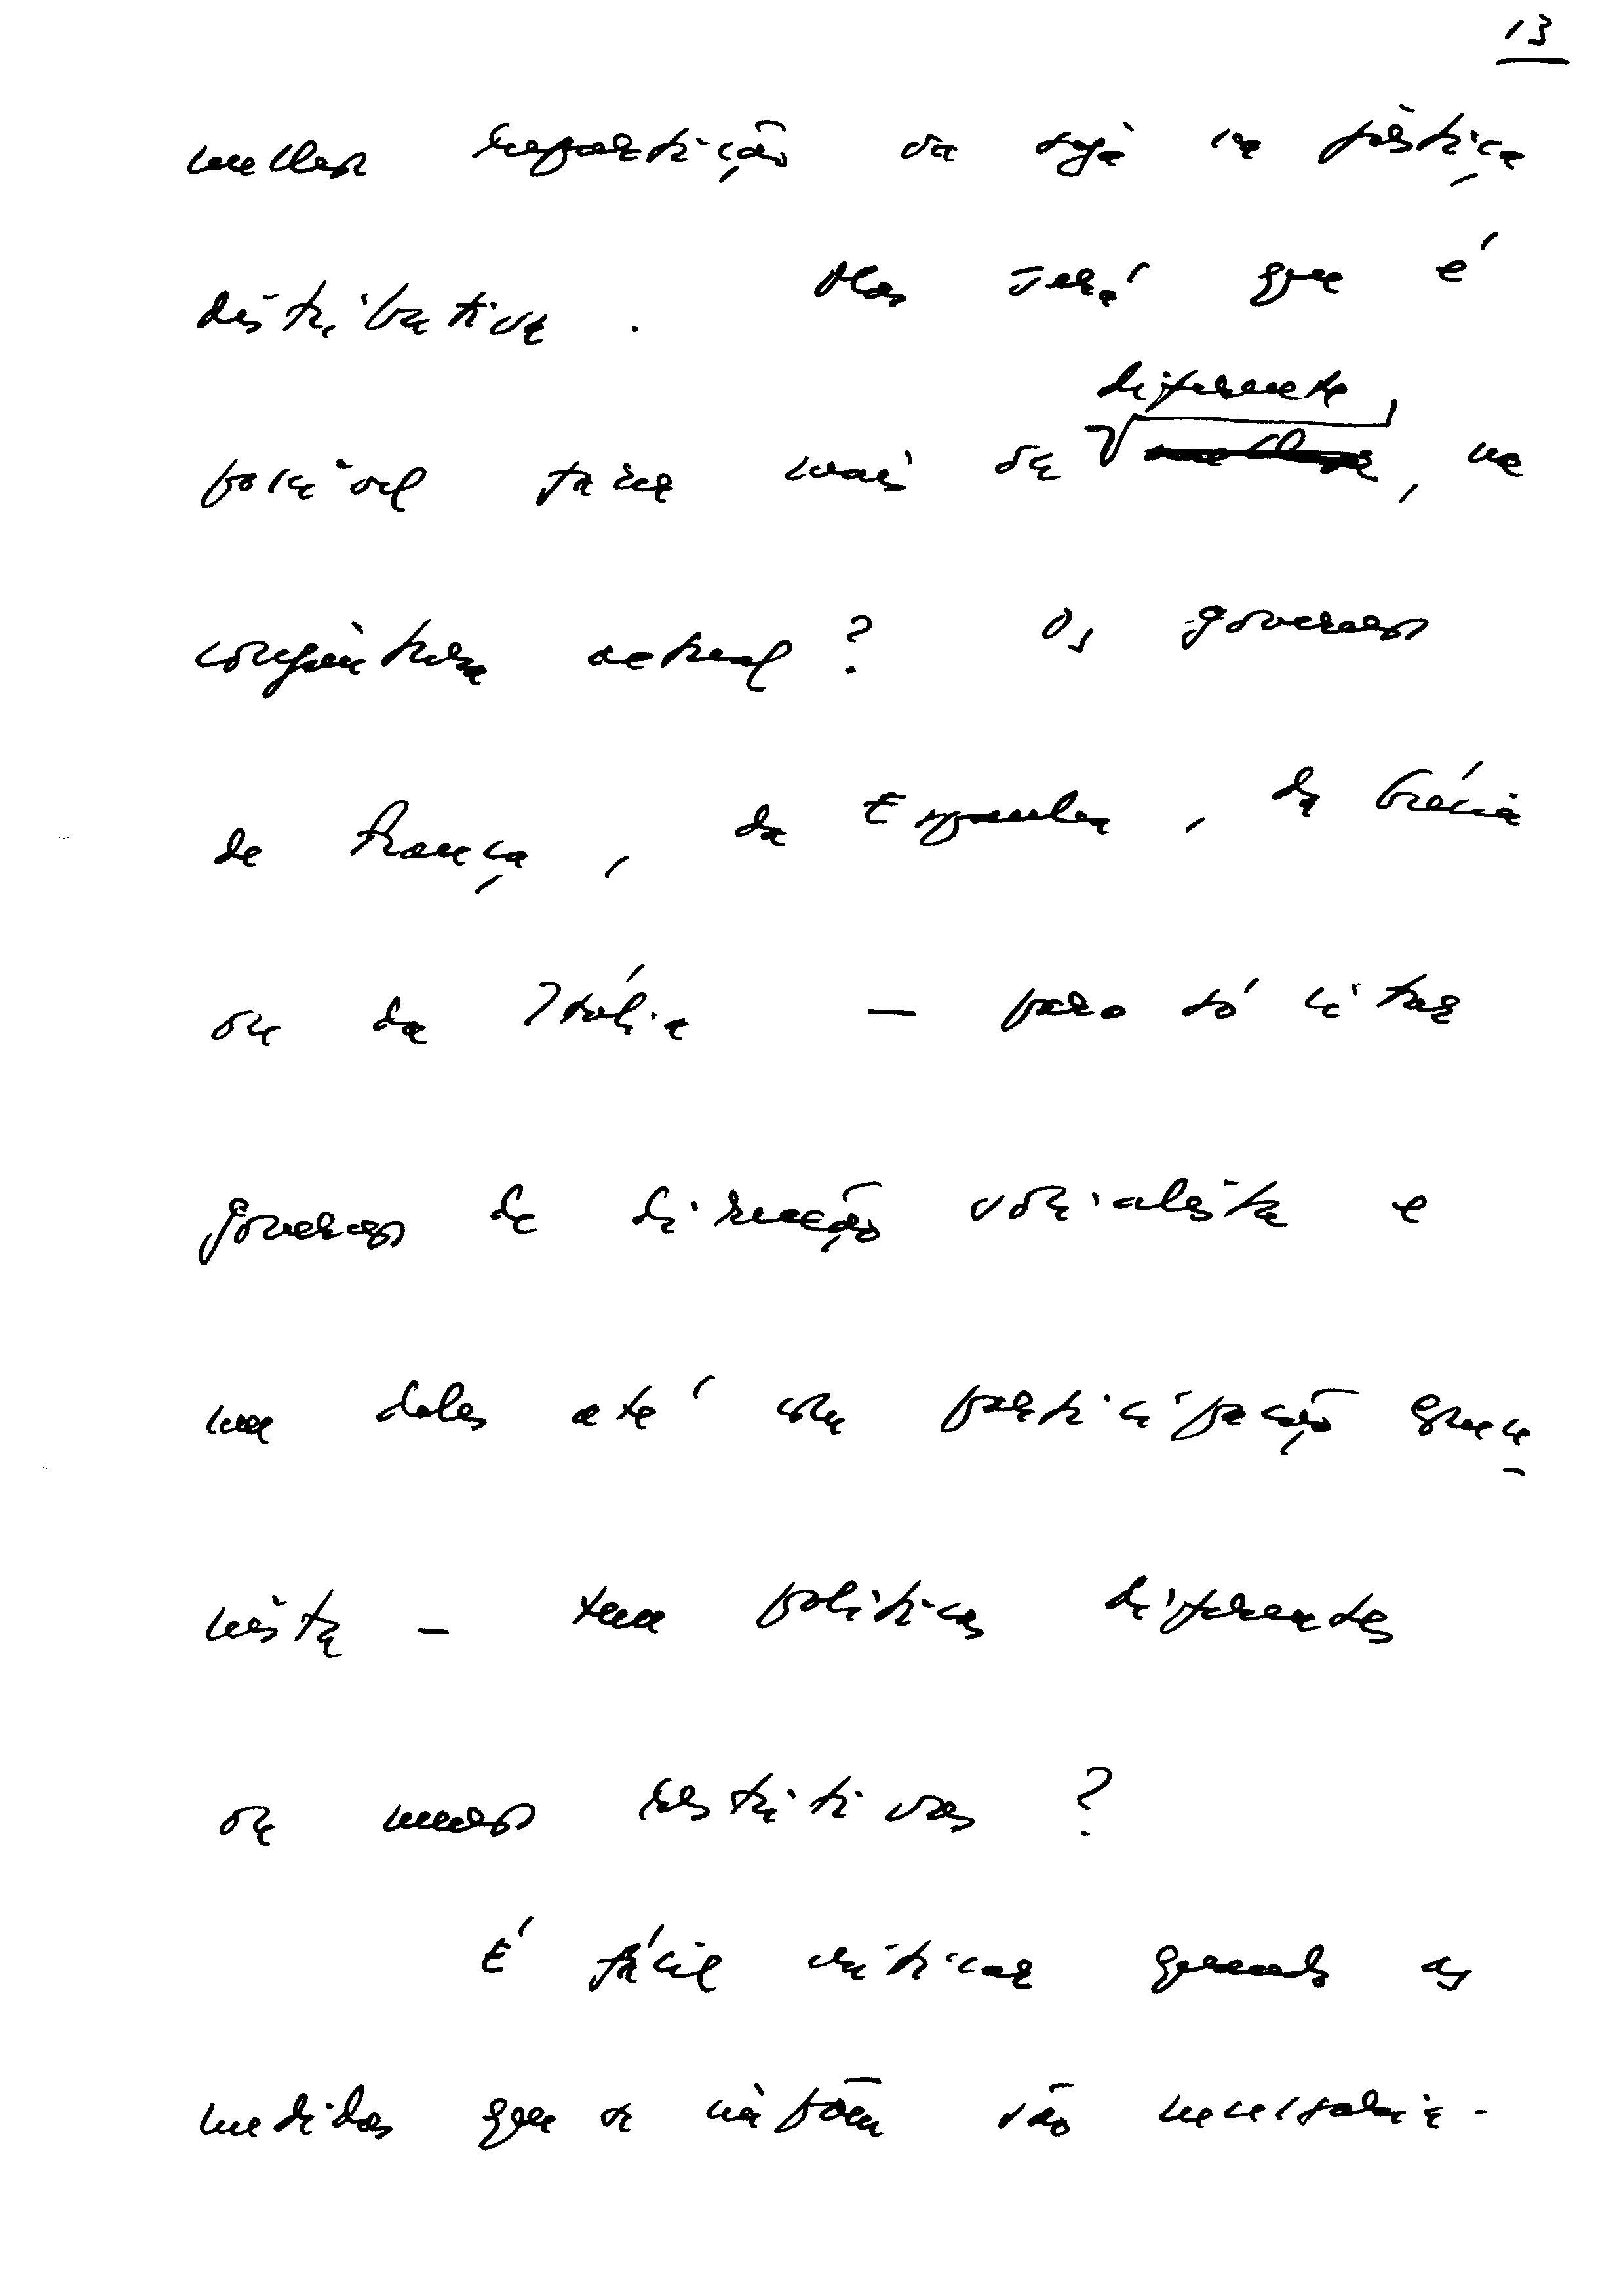 13
melhor repartição ou seja na justiça
distributiva. Mas será que é
diferente
possível fazer mais ou melhor, na
conjuntura actual? Os governos
de França, da Espanha, da Grécia
ou da Itália — para só citar
governos de direcção socialista e
um deles até com participação comu-
nista — tem politicas diferentes
ou menos restritivas?
É fácil criticar quando as
medidas que se impõem são necessaria-